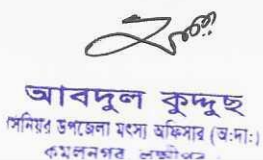 আবদুল কুদ্দুছ
সিনিয়র উপজেলা মৎস্য অফিসার (অ:দা:)
কমলনগর লক্ষ্মীপুর